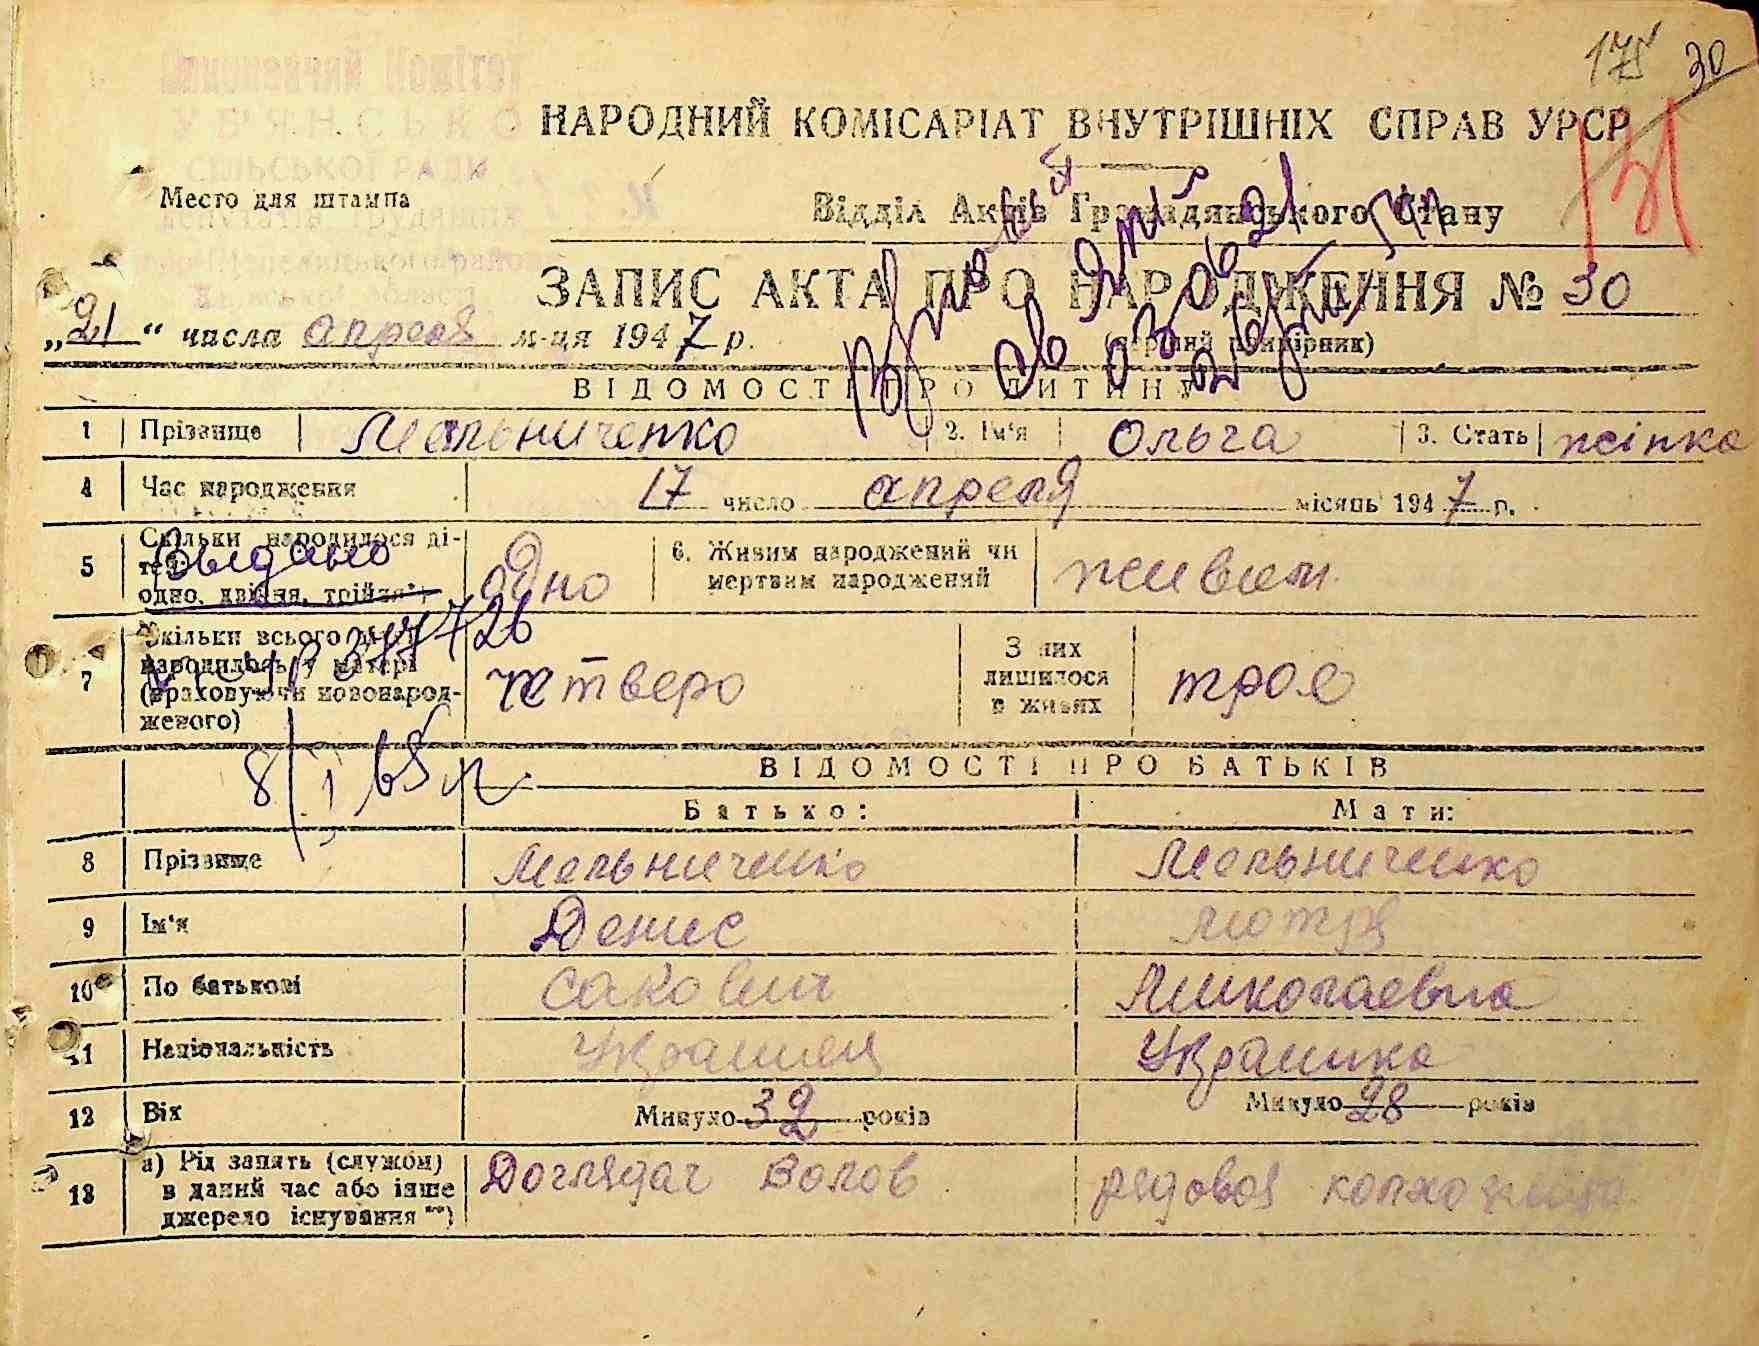 175 30
НАРОДНИЙ КОМІСАРІАТ ВНУТРІШНІХ СПРАВ УРСР
СІЛЬСЬКОЇ РАДИ
Место для штампа
Відділ Актів Громадянського Стану
ЗАПИС АКТА ПРО НАРОДЖЕННЯ № 30
„21“ числа апреля м-ця 1947 р.
(первий примірник)
ВІДОМОСТІ ПРО ДИТИНУ
1 Прізвище Мельниченко 2. Ім'я Ольга 3. Стать жінка
4 Час народження 17 число апреля місяць 1947 р.
5 Скільки народилося дітей: одно, двійня, трійня*) одно 6. Живим народжений чи мертвим народжений живим
Выдано
7 Скільки всього дітей народилось у матері (враховуючи новонародженого) четверо З них лишилося в живях трое
8/I 65 г.
ВІДОМОСТІ ПРО БАТЬКІВ
Батько: Мати:
8 Прізвище Мельниченко Мельниченко
9 Ім'я Денис Мотря
10 По батькові Сакович Миколаевна
11 Національність Украинец Украинка
12 Вік Минуло 32 років Минуло 28 років
13 а) Рід занять (служби) в даний час або інше джерело існування **) Доглядач Волов рядовая колхозница